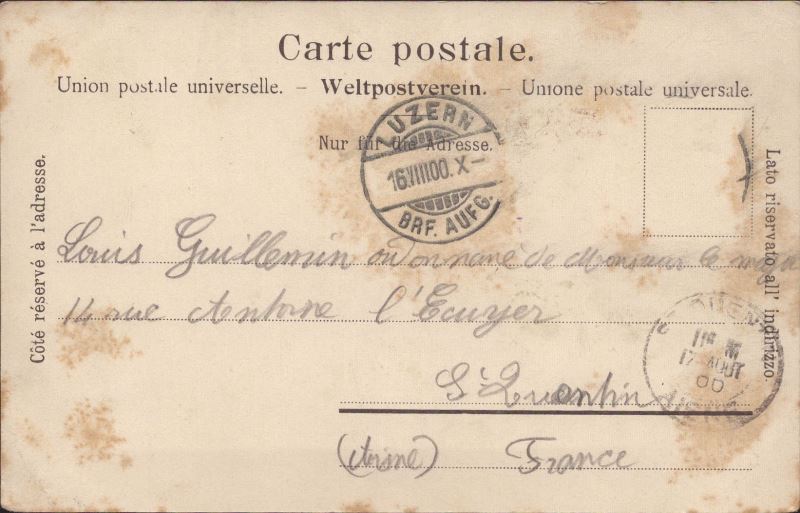 Carte postale.
Union postale universelle. – Weltpostverein. – Unione postale universale.
Nur für die Adresse.
LUZERN
16.VIII.00.X–
BRF. AUFG.
Côté réservé à l'adresse.
Lato riservato all' indirizzo.
Louis Guillemin ordonnance de Monsieur le
14 rue Antoine l'Ecuyer
St Quentin
(Aisne) France
QUENTIN
17 AOUT
00
AISNE